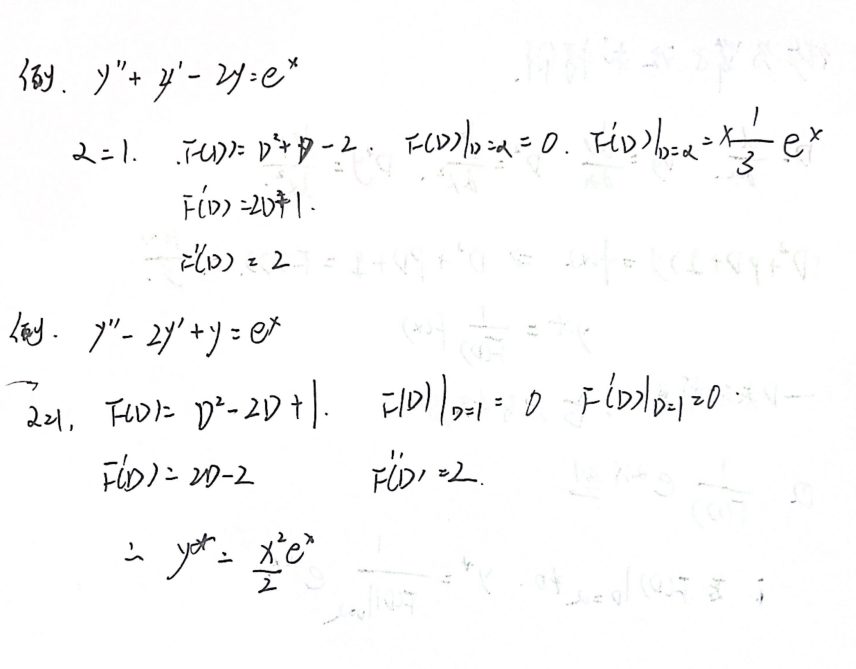 例. y''+y'-2y=e^x
α=1. F(D)=D²+D-2. F(D)|_{D=α}=0. F'(D)|_{D=α}=x\frac{1}{3}e^x
F'(D)=2D+1.
F''(D)=2
例. y''-2y'+y=e^x
α=1, F(D)=D²-2D+1. F(D)|_{D=1}=0 F'(D)|_{D=1}=0.
F'(D)=2D-2 F''(D)=2.
∴ y*=\frac{x²e^x}{2}